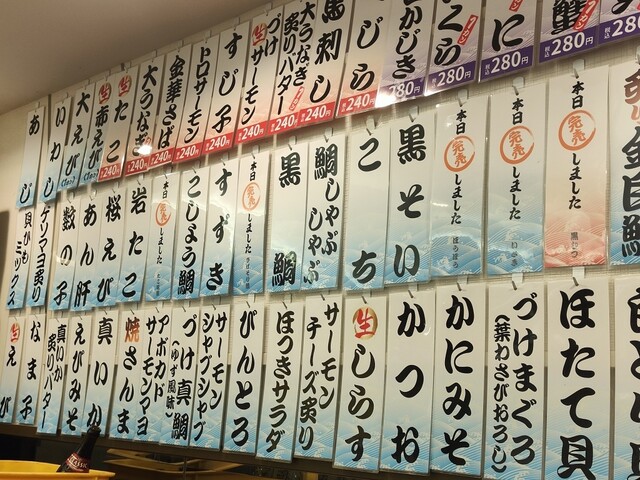 あじ
いわし
大えび
生赤えび
生たこ 240円
大うなぎ 240円
金華さば 240円
トロサーモン 240円
すじ子 240円
生サーモン 240円
づけ炙りバター
大うなぎ
馬刺し
くじら 240円
めかじき 280円
280円
280円
280円
280円
貝ひもミックス
ゲソマヨ炙り
数の子
あん肝
桜えび
岩たこ
本日完売しました
こしょう鯛
すずき
本日完売しました
黒鯛
鯛しゃぶしゃぶ
こち
黒そい
本日完売しました ほうぼう
本日完売しました いさき
本日完売しました 黒むつ
金目鯛
生えび
なま子
真いか炙りバター
えびみそ
真いか
焼さんま
アボカドサーモンマヨ
づけ真鯛(ゆず風味)
サーモンシャブシャブ
びんとろ
ほっきサラダ
サーモンチーズ炙り
生しらす
かつお
かにみそ
づけまぐろ(葉わさびおろし)
ほたて貝